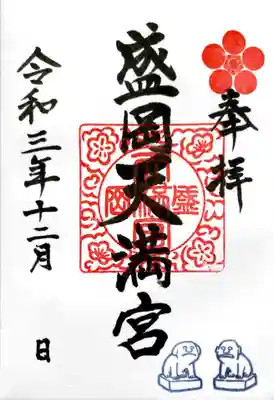 奉拝
盛岡天満宮
令和三年十二月 日